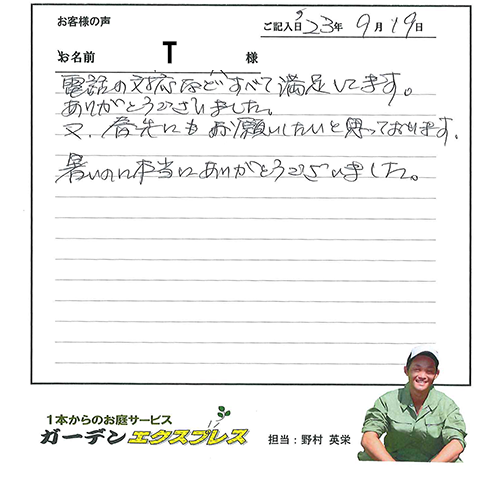 お客様の声
ご記入日 '23年 9月 19日
お名前 T 様
電話の対応などすべて満足してます。
ありがとうございました。
又、春先にもお願いしたいと思っております。
暑いのに本当にありがとうございました。
1本からのお庭サービス
ガーデンエクスプレス
担当：野村 英栄